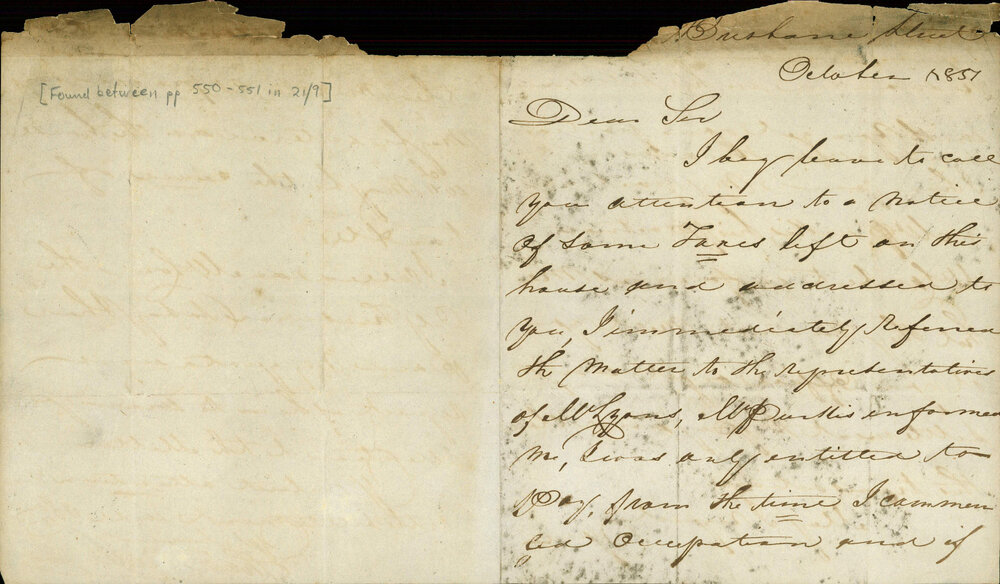 [Found between pp 550-551 in 21/9]
Brisbane Street
October 1851
Dear Sir
I beg leave to call
you attention to a Notice
of some Taxes left on this
house and addressed to
you, I immediately Referred
the Matter to the Representatives
of Mr Lyons, Mr Purkis enformed
me, I was only entitled to
Pay, from the time I commen
ced Occupation and if